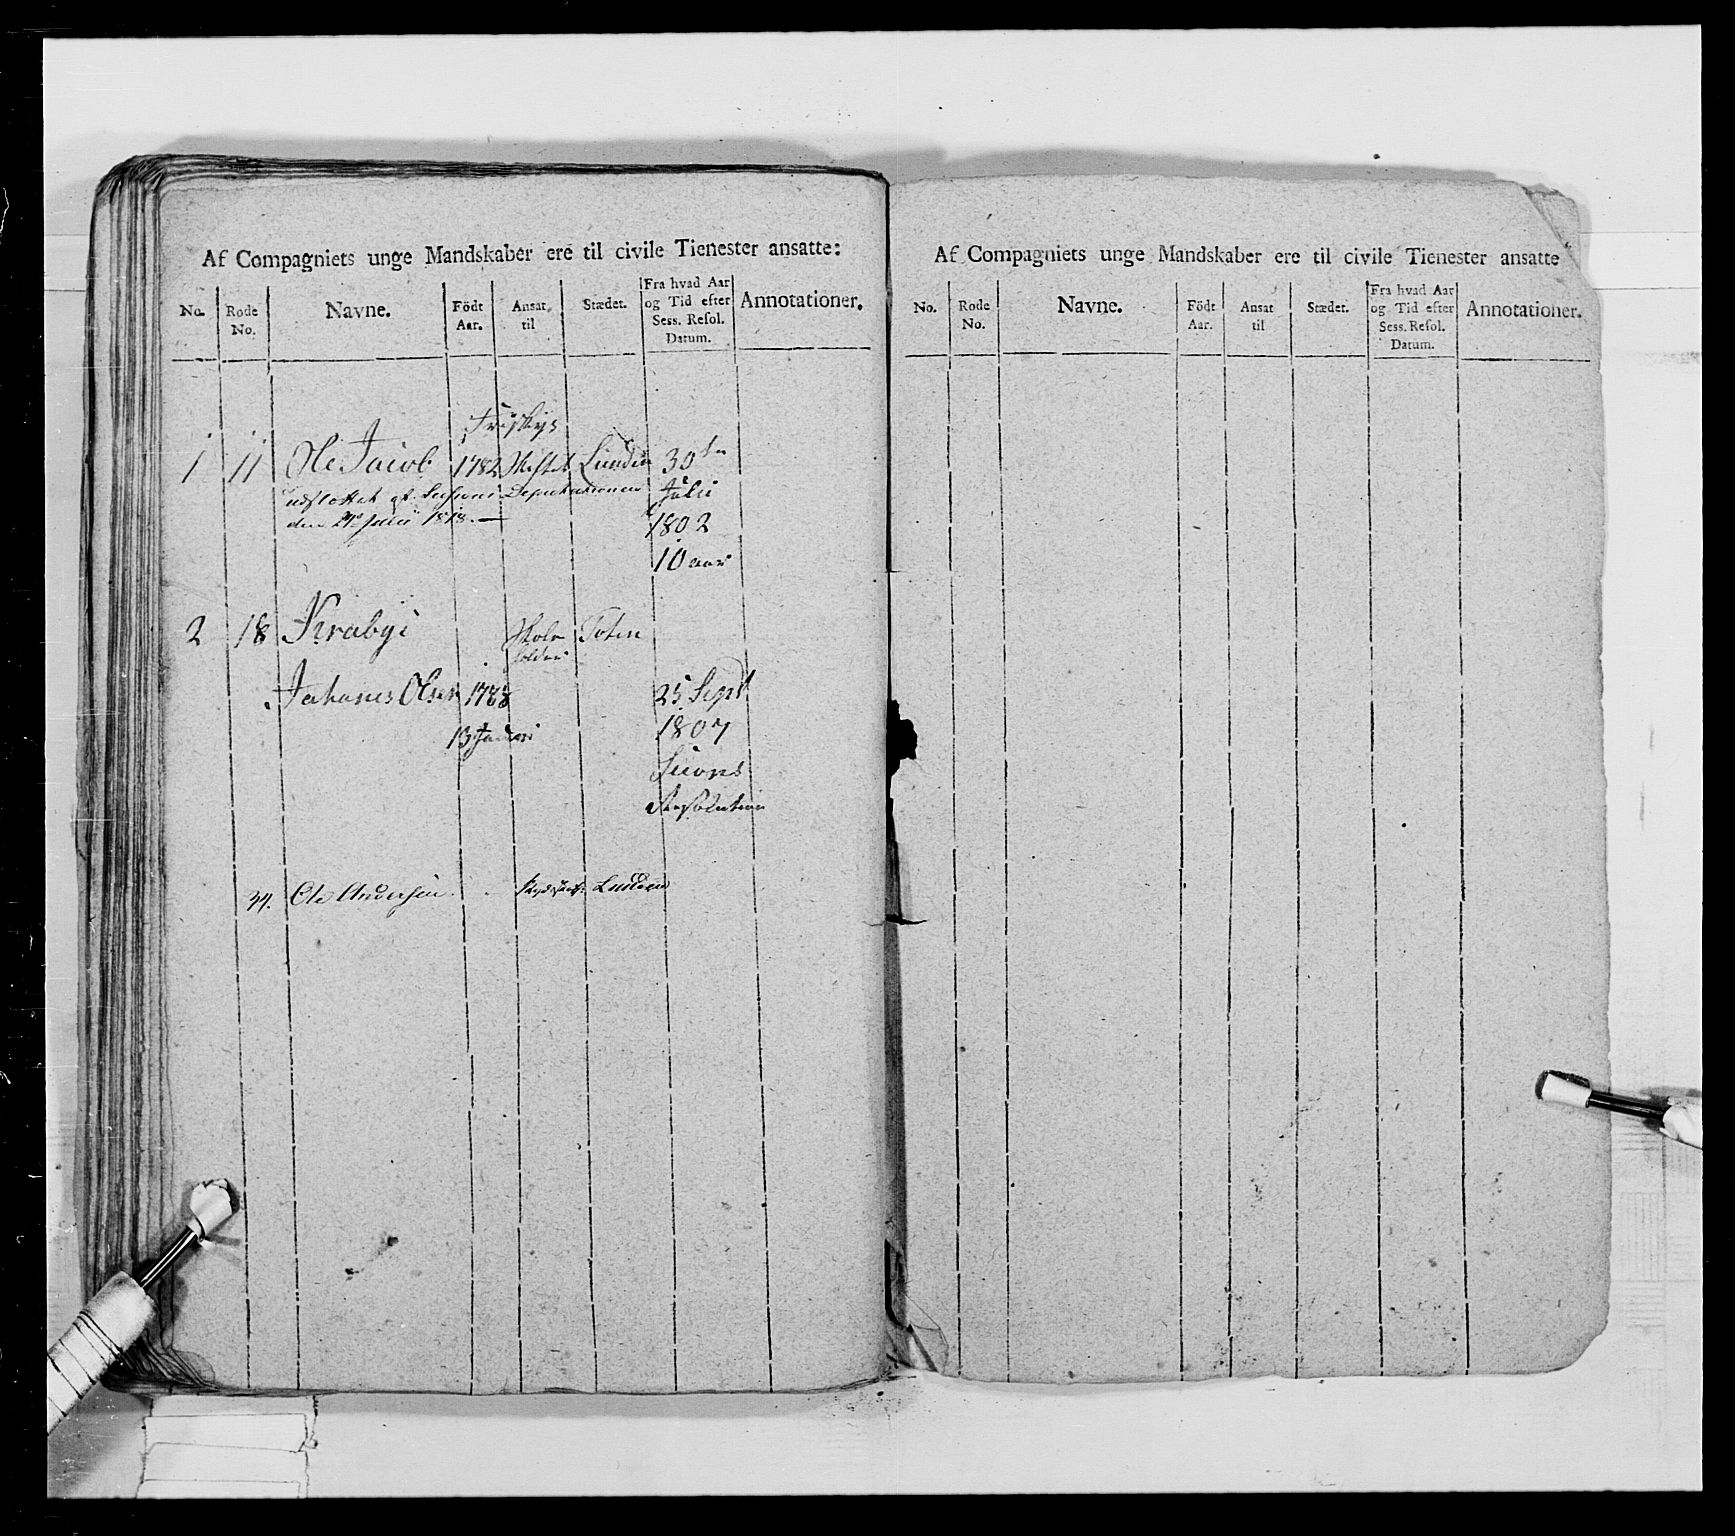 Af Compagniets unge Mandskaber ere til civile Tienester ansatte:
No. Rode No. Navne. Födt Aar. Ansat til Stædet. Fra hvad Aar og Tid efter Sess. Resol. Datum. Annotationer.
1 11 Ole Jacob 1782 Lunden 30te
Deputationen Julii
den Julii 1818.
1802
10 aar
2 18 Kraby Skole Toten
holder
Johanes Olsen 1788 25 Sept
13 Januari 1807
Resolution
Ole Andersen Lunden
Af Compagniets unge Mandskaber ere til civile Tienester ansatte
No. Rode No. Navne. Födt Aar. Ansat til Stædet. Fra hvad Aar og Tid efter Sess. Resol. Datum. Annotationer.